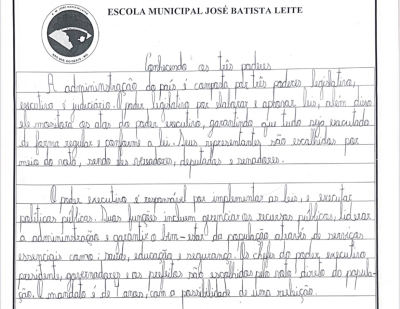 ESCOLA MUNICIPAL JOSÉ BATISTA LEITE
Conhecendo os três poderes
A administração do país é composta por três poderes legislativo,
executivo e judiciário. O poder legislativo por elaborar e aprovar leis, além disso
ele monitora os atos do poder executivo, garantindo que tudo seja executado
de forma regular e conforme a lei. Seus representantes são escolhidos por
meio do voto, sendo eles vereadores, deputados e senadores.
O poder executivo é responsável por implementar as leis, e executar
políticas públicas. Suas funções incluem gerenciar os recursos públicos, liderar
a administração e garantir o bem-estar da população através de serviços
essenciais como: saúde, educação e segurança. Os chefes do poder executivo
presidente, governadores e os prefeitos são escolhidos pelo voto direto da popula-
ção. O mandato é de 4 anos, com a possibilidade de uma reeleição.